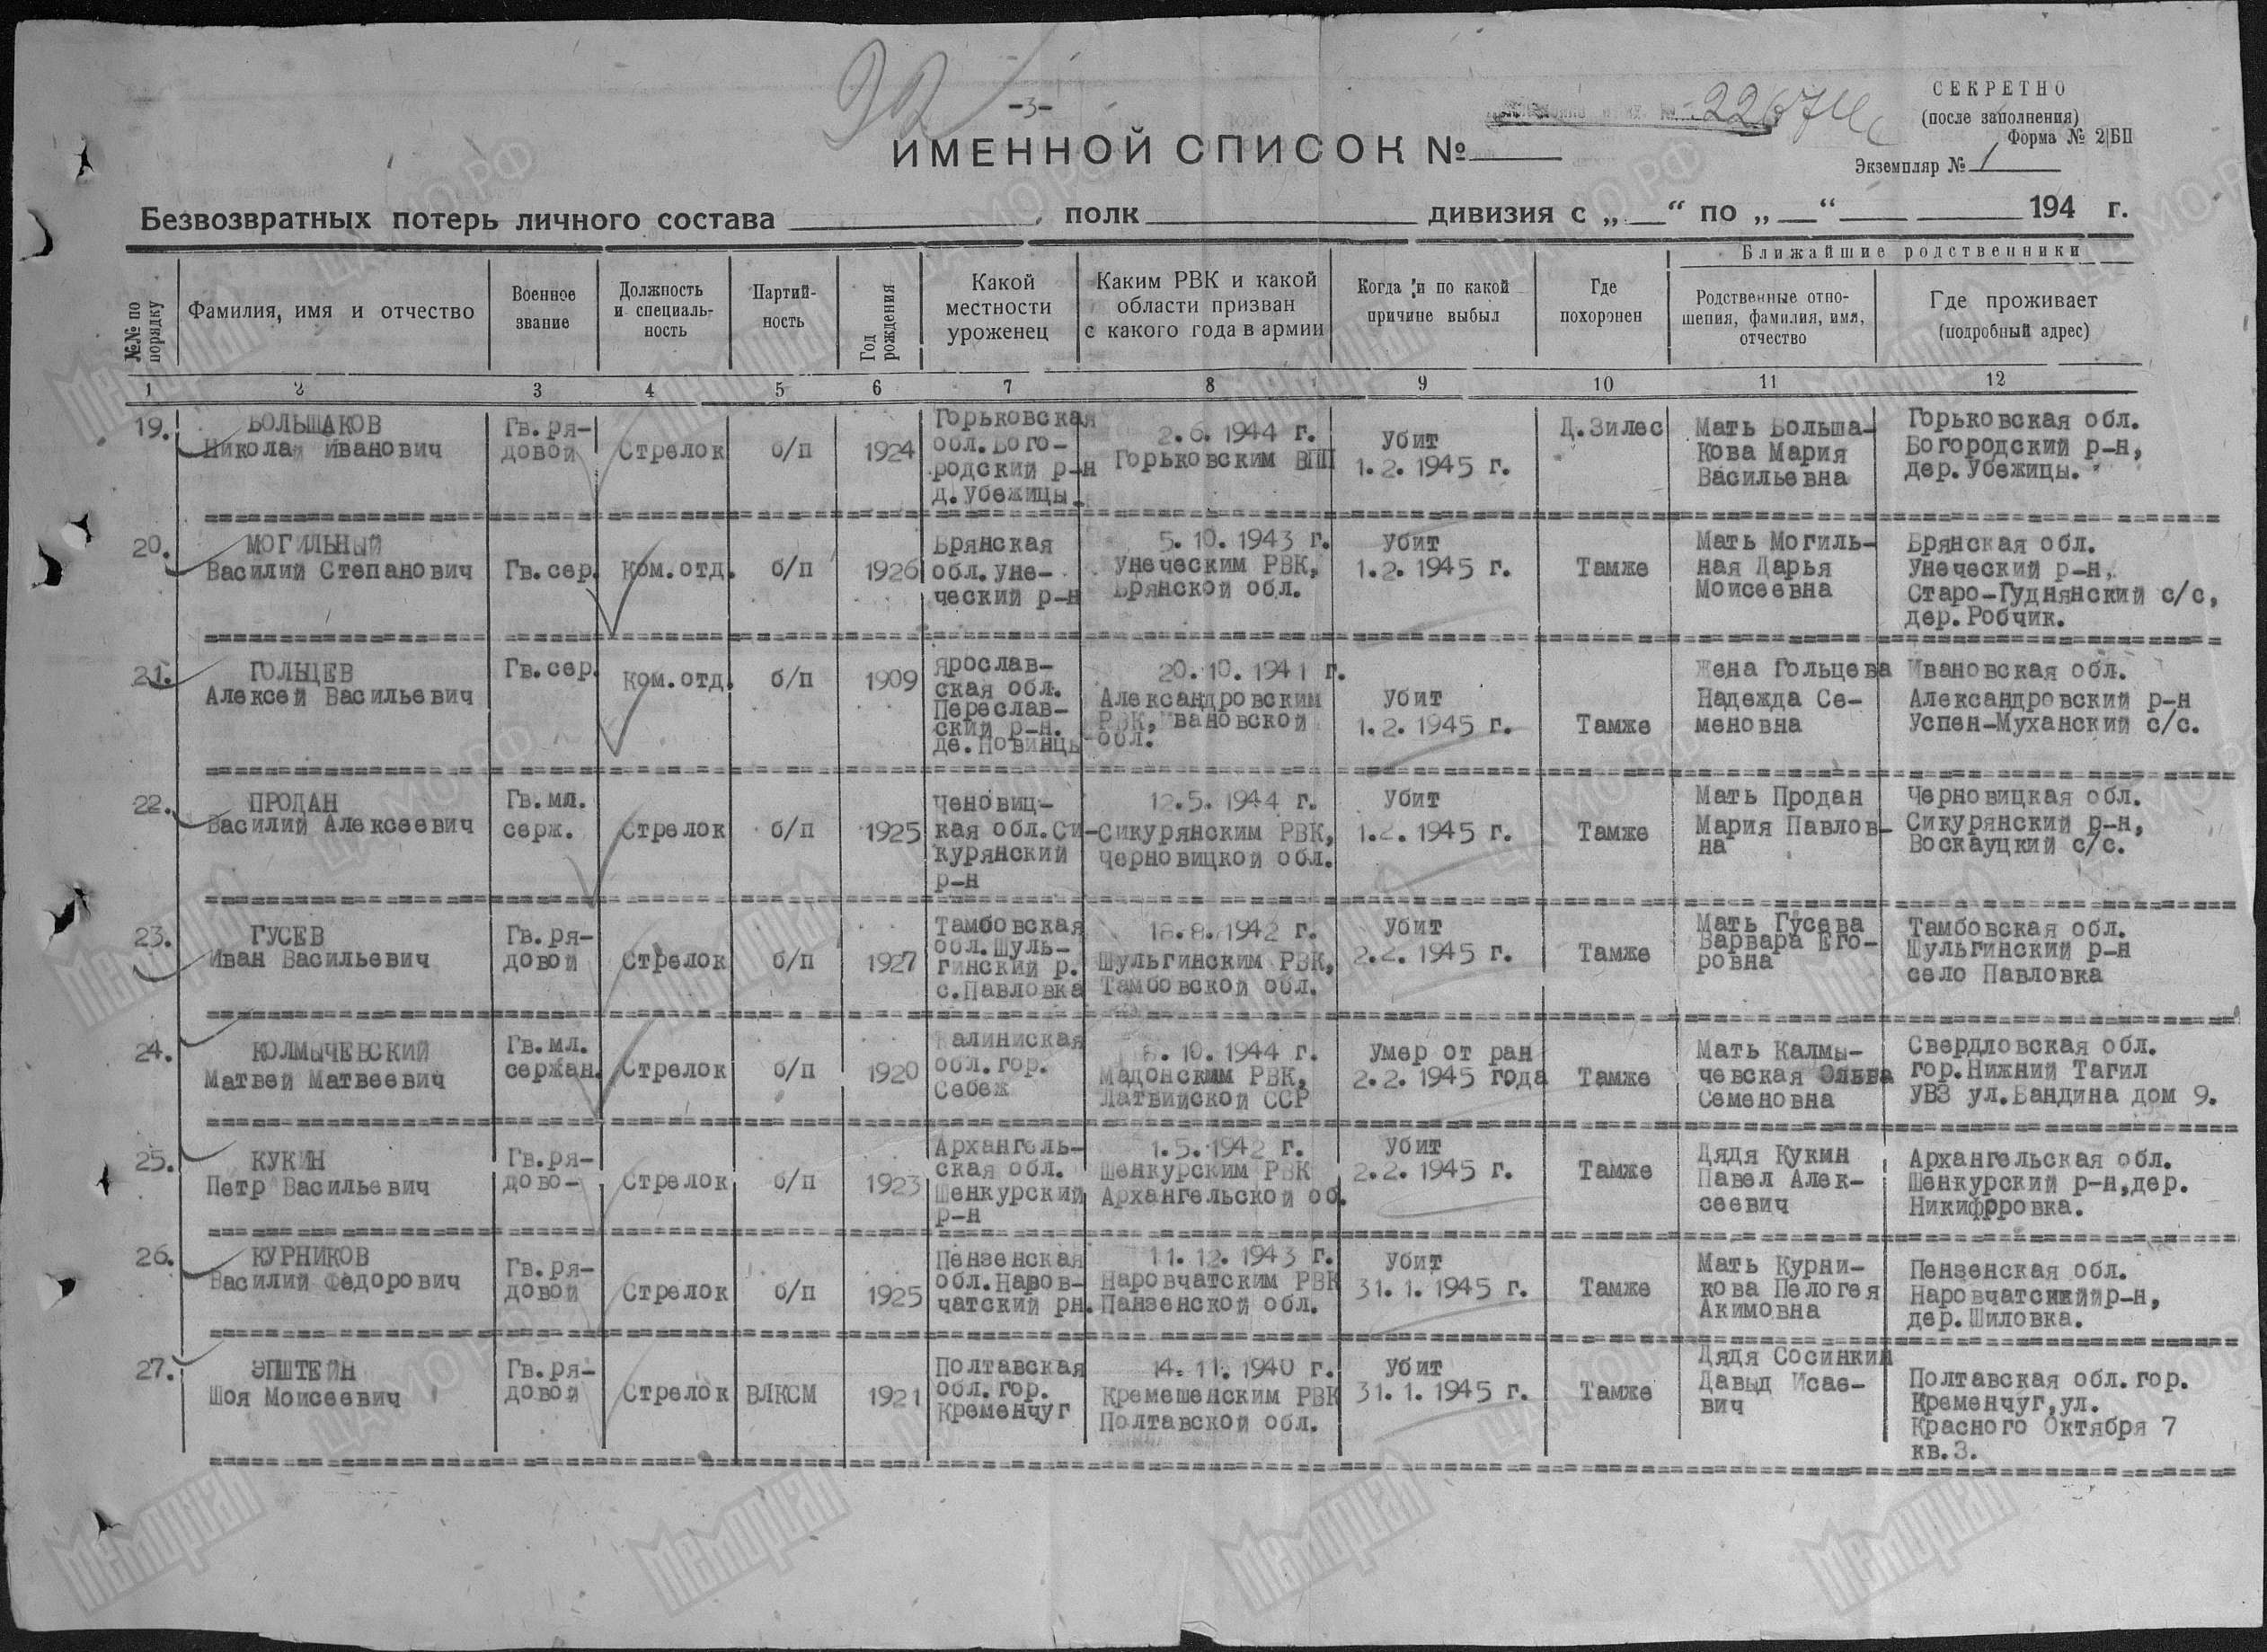 32
-3-
22674с
СЕКРЕТНО
(после заполнения)
Форма № 2/БП
Экземпляр № 1
ИМЕННОЙ СПИСОК №
Безвозвратных потерь личного состава полк дивизия с „ “ по „ “ 194 г.
№№ по порядку
Фамилия, имя и отчество
Военное звание
Должность и специаль-ность
Партий-ность
Год рождения
Какой местности уроженец
Каким РВК и какой области призван с какого года в армии
Когда и по какой причине выбыл
Где похоронен
Ближайшие родственники
Родственные отно-шения, фамилия, имя, отчество
Где проживает (подробный адрес)
1 2 3 4 5 6 7 8 9 10 11 12
19.
БОЛЬШАКОВ
Николай Иванович
Гв.ря-
довой
Стрелок
б/п
1924
Горьковская
обл.Бого-
родский р-н
д.Убежицы.
2.6. 1944 г.
Горьковским ВПП
Убит
1.2. 1945 г.
Д.Зилес
Мать Больша-
кова Мария
Васильевна
Горьковская обл.
Богородский р-н,
дер.Убежицы.
20.
МОГИЛЬНЫЙ
Василий Степанович
Гв.сер.
Ком.отд.
б/п
1926
Брянская
обл.Уне-
ческий р-н
5. 10. 1943 г.
Унеческим РВК,
Брянской обл.
Убит
1.2. 1945 г.
Тамже
Мать Могиль-
ная Дарья
Моисеевна
Брянская обл.
Унеческий р-н,
Старо-Гуднянский с/с,
дер.Робчик.
21.
ГОЛЬЦЕВ
Алексей Васильевич
Гв.сер.
Ком.отд.
б/п
1909
Ярослав-
ская обл.
Переслав-
ский р-н.
де.Новинцы
20. 10. 1941 г.
Александровским
РВК, Ивановской
обл.
Убит
1.2. 1945 г.
Тамже
Жена Гольцева
Надежда Се-
меновна
Ивановская обл.
Александровский р-н
Успен-Муханский с/с.
22.
ПРОДАН
Василий Алексеевич
Гв.мл.
серж.
Стрелок
б/п
1925
Ченовиц-
кая обл.Си-
курянский
р-н
12.5. 1944 г.
Сикурянским РВК,
Черновицкой обл.
Убит
1.2. 1945 г.
Тамже
Мать Продан
Мария Павлов-
на
Черновицкая обл.
Сикурянский р-н,
Воскауцкий с/с.
23.
ГУСЕВ
Иван Васильевич
Гв.ря-
довой
Стрелок
б/п
1927
Тамбовская
обл.Шуль-
гинский р.
с.Павловка
18.8. 1942 г.
Шульгинским РВК,
Тамбовской обл.
Убит
2.2. 1945 г.
Тамже
Мать Гусева
Варвара Его-
ровна
Тамбовская обл.
Шульгинский р-н
село Павловка
24.
КОЛМЫЧЕВСКИЙ
Матвей Матвеевич
Гв.мл.
сержан.
Стрелок
б/п
1920
Калиниская
обл.гор.
Себеж
8. 10. 1944 г.
Мадонским РВК,
Латвийской ССР
Умер от ран
2.2. 1945 года
Тамже
Мать Калмы-
чевская Ольга
Семеновна
Свердловская обл.
гор.Нижний Тагил
УВЗ ул.Вандина дом 9.
25.
КУКИН
Петр Васильевич
Гв.ря-
дово-
Стрелок
б/п
1923
Архангель-
ская обл.
Шенкурский
р-н
1.5. 1942 г.
Шенкурским РВК
Архангельской об.
Убит
2.2. 1945 г.
Тамже
Дядя Кукин
Павел Алек-
сеевич
Архангельская обл.
Шенкурский р-н,дер.
Никифрровка.
26.
КУРНИКОВ
Василий Федорович
Гв.ря-
довой
Стрелок
б/п
1925
Пензенская
обл.Наров-
чатский рн.
11. 12. 1943 г.
Наровчатским РВК
Панзенской обл.
Убит
31. 1. 1945 г.
Тамже
Мать Курни-
кова Пелогея
Акимовна
Пензенская обл.
Наровчатский р-н,
дер.Шиловка.
27.
ЭПШТЕЙН
Шоя Моисеевич
Гв.ря-
довой
Стрелок
ВЛКСМ
1921
Полтавская
обл.гор.
Кременчуг
14. 11. 1940 г.
Кремешенским РВК
Полтавской обл.
Убит
31. 1. 1945 г.
Тамже
Дядя Сосинкин
Давыд Исае-
вич
Полтавская обл.гор.
Кременчуг,ул.
Красного Октября 7
кв.3.